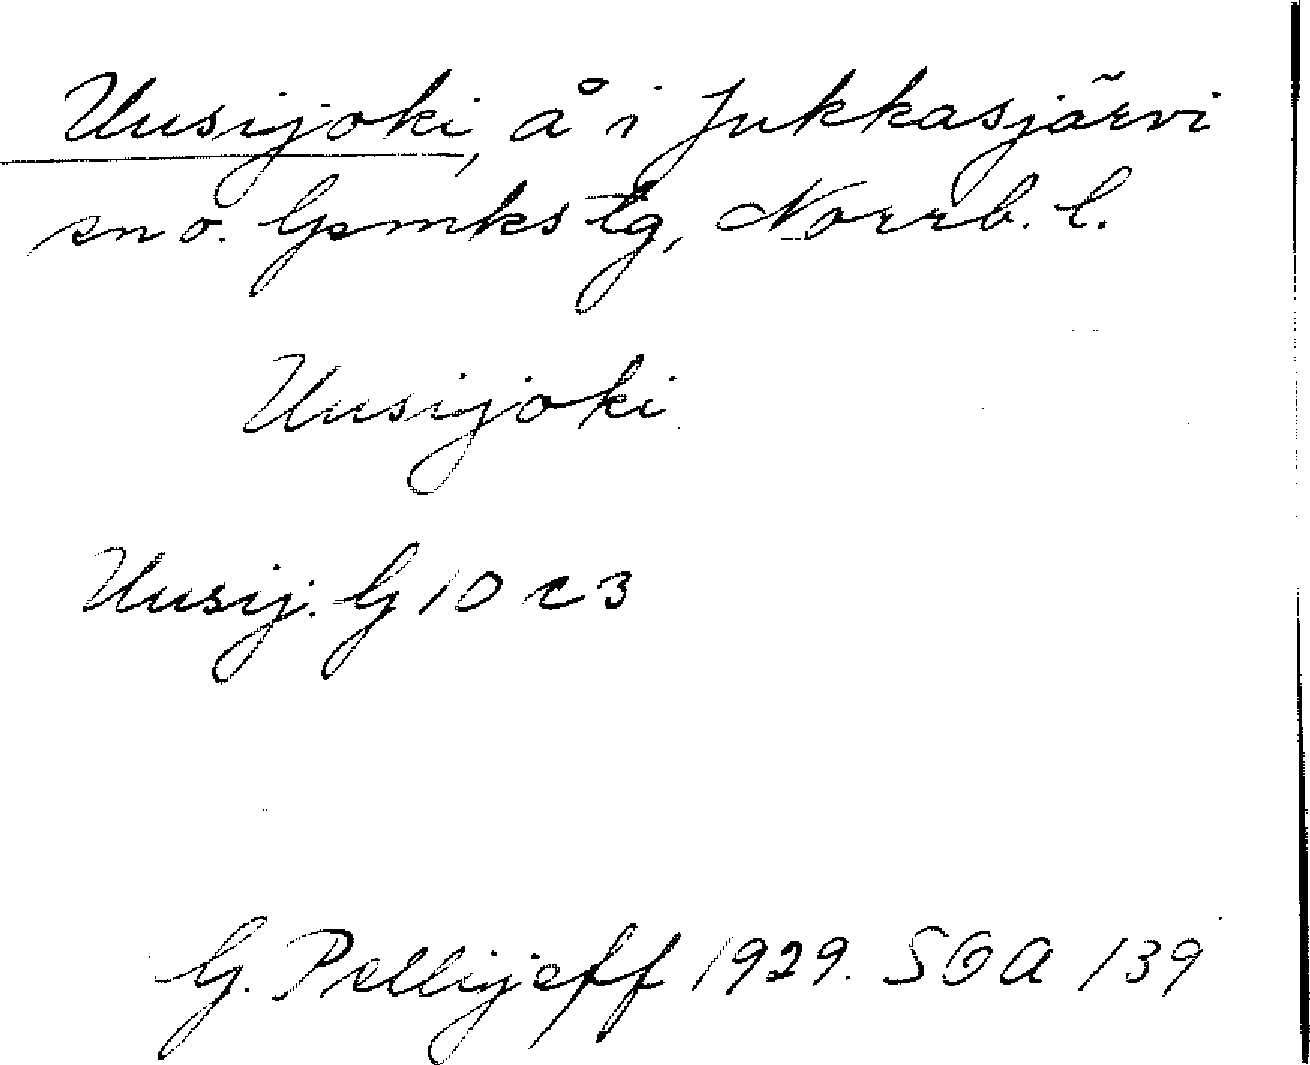 Uusijoki, å i Jukkasjärvi
sn o. Lpmks tg, Norrb. l.
Uusijoki
Uusij. G 10 c 3
G. Pellijeff 1929. SOA 139